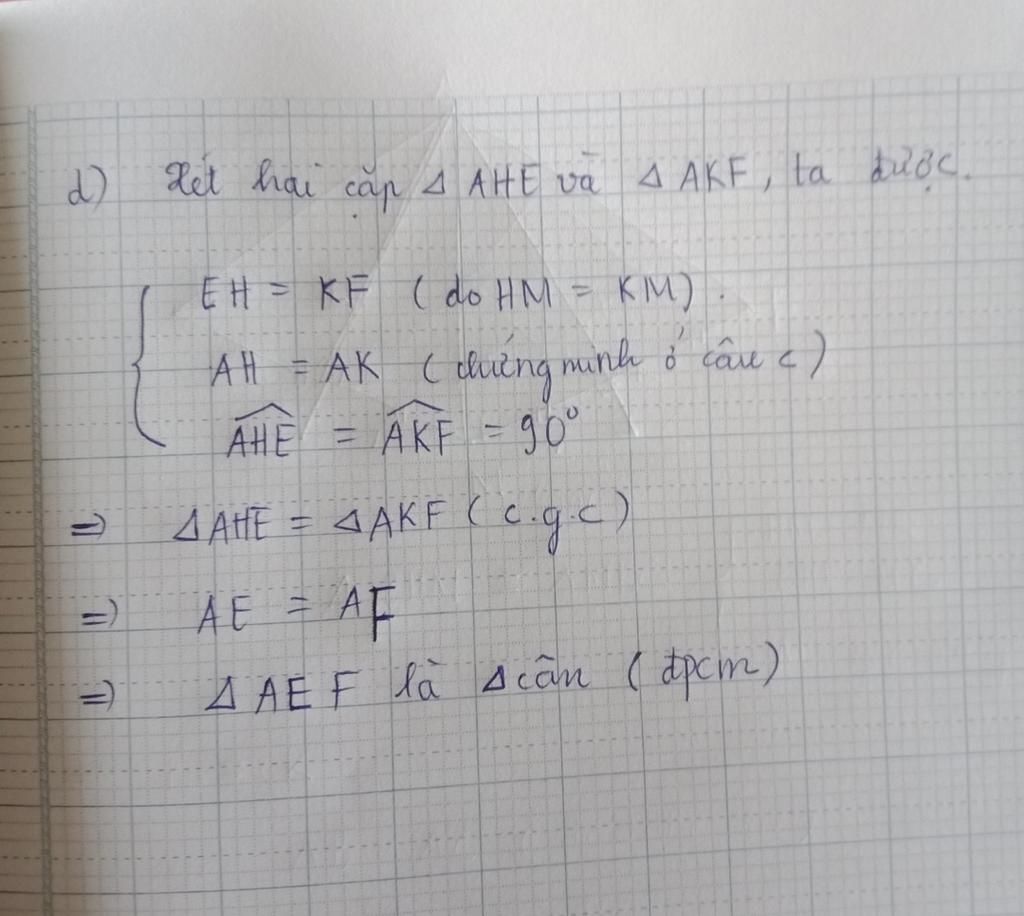 d) Xét hai cặp Δ AHE và Δ AKF, ta được.
EH = KF (do HM = KM).
AH = AK (chứng minh ở câu c)
AHE = AKF = 90°
=> ΔAHE = ΔAKF (c.g.c)
=> AE = AF
=> ΔAEF là Δcân (đpcm)